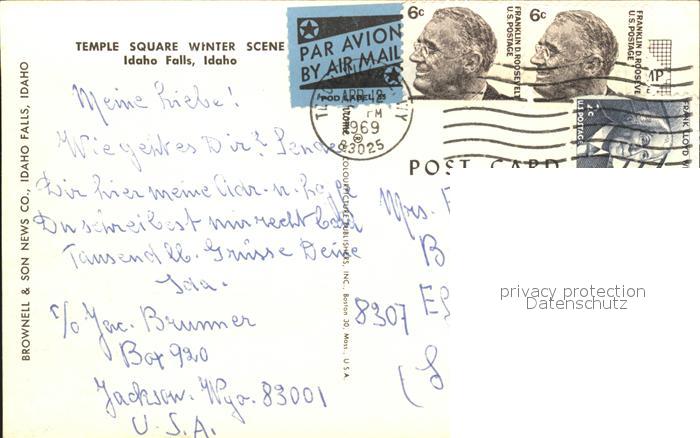 TEMPLE SQUARE WINTER SCENE
Idaho Falls, Idaho
BROWNELL & SON NEWS CO., IDAHO FALLS, IDAHO
PAR AVION
BY AIR MAIL
POD LABEL
6c
FRANKLIN D. ROOSEVELT
U.S. POSTAGE
6c
FRANKLIN D. ROOSEVELT
U.S. POSTAGE
2c
U.S. POSTAGE
FRANK LLOYD
APR
PM
1969
83025
POST CARD
COLOURPICTURE PUBLISHERS, INC., Boston 30, Mass., U.S.A.
Meine Liebe!
Wie geht es Dir? Sende
Dir hier meine Adr. u. hoffe
Du schreibest mir recht bald
Tausend lb. Grüsse Deine
Ida.
c/o Jac. Brunner
Box 920
Jackson. Wyo. 83001
U.S.A.
Mrs.
B
8307
(S
privacy protection
Datenschutz